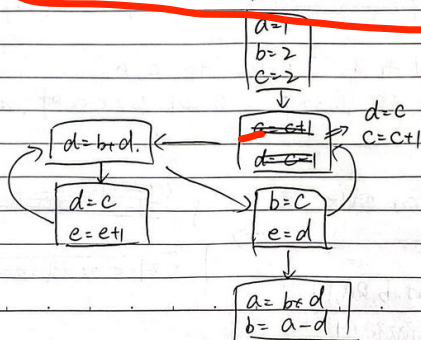 a=1
b=2
c=2
c=c+1
d=c-1
d=c
c=c+1
d=b+d.
d=c
e=e+1
b=c
e=d
a=b+d
b=a-d